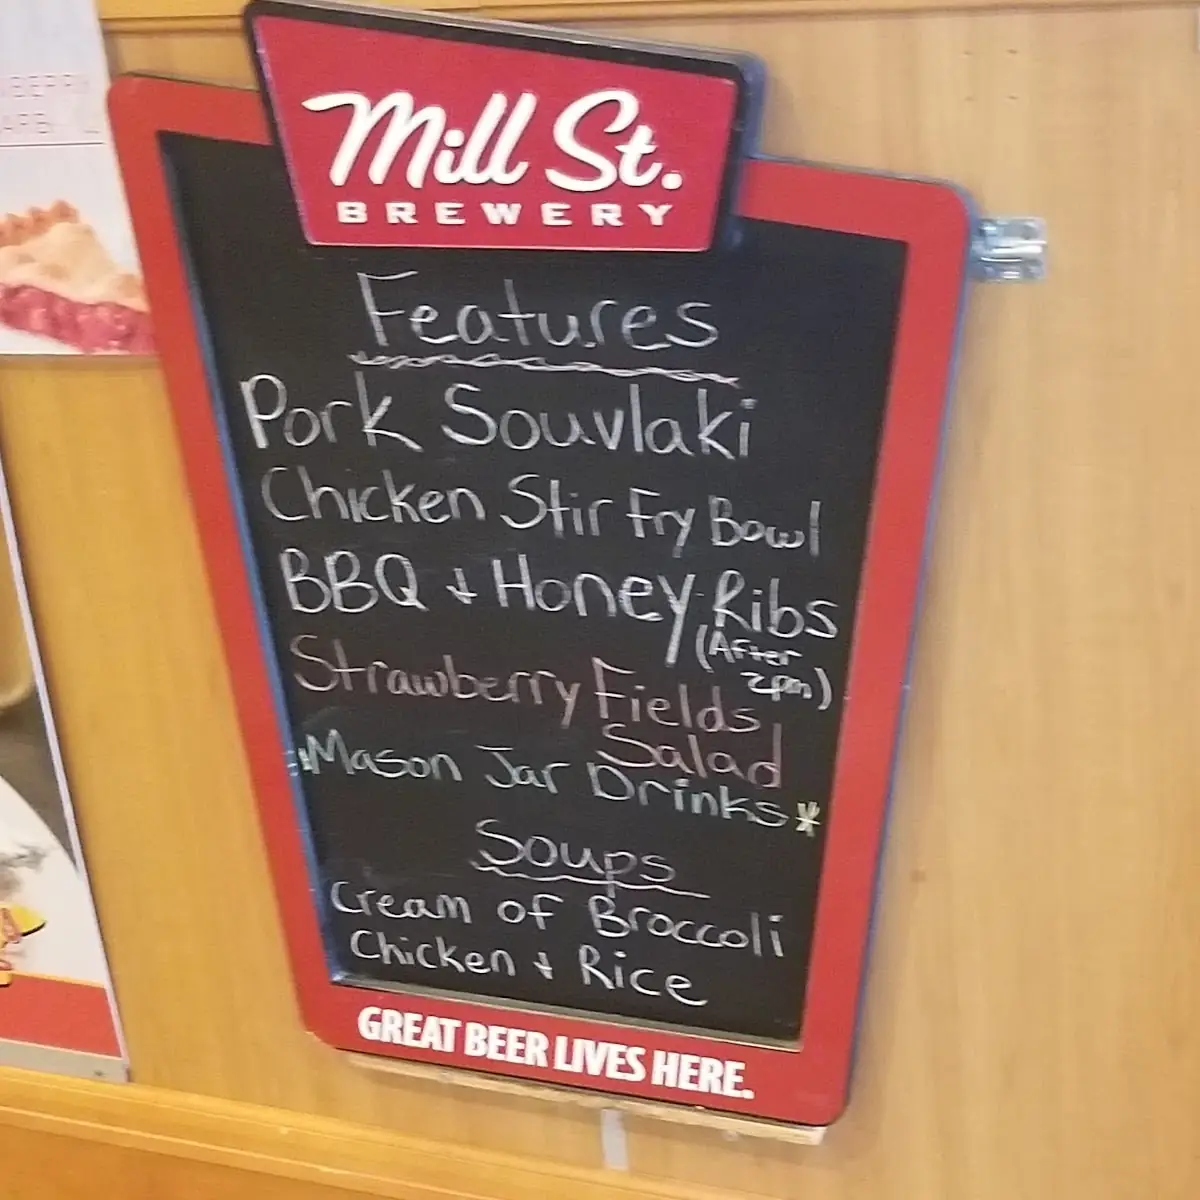 Mill St.
BREWERY
Features
Pork Souvlaki
Chicken Stir Fry Bowl
BBQ + Honey Ribs
(After
2pm)
Strawberry Fields
Salad
*Mason Jar Drinks*
Soups
Cream of Broccoli
Chicken + Rice
GREAT BEER LIVES HERE.